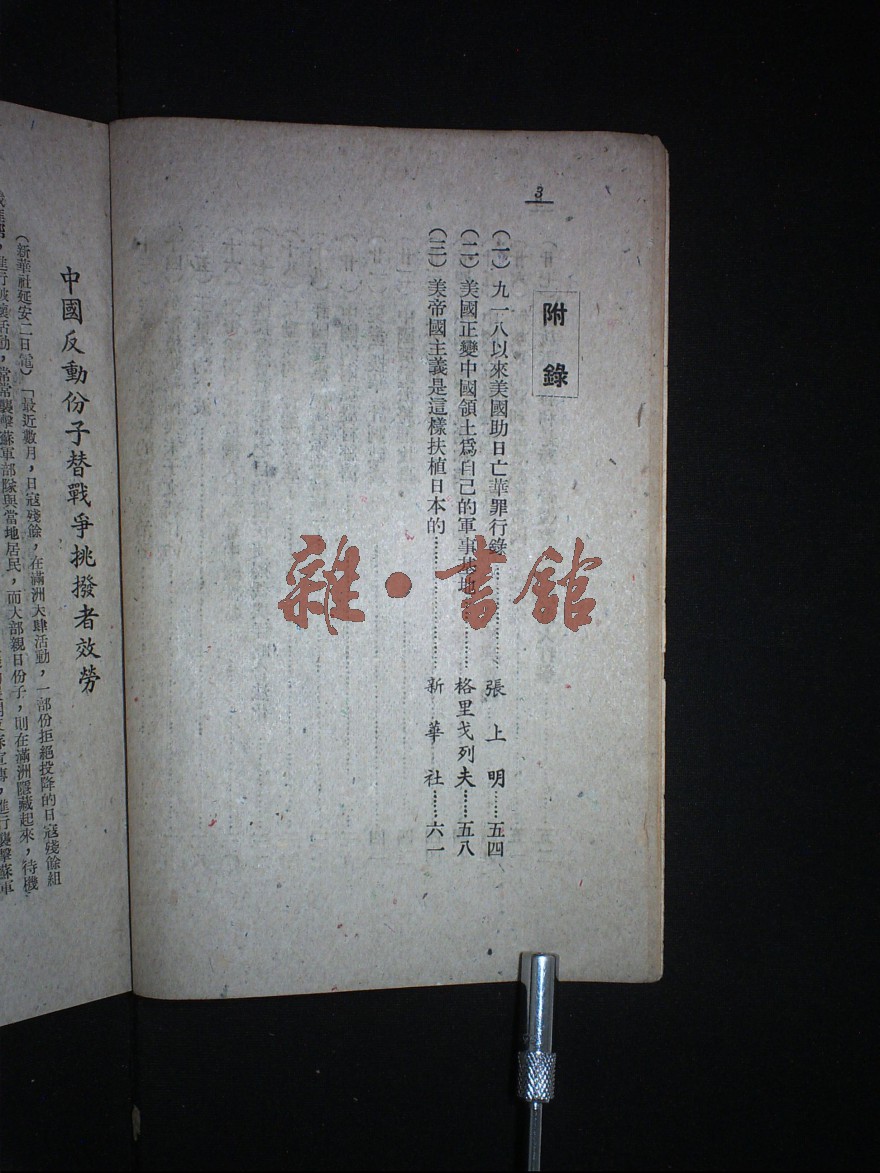 3
附錄
（一）九一八以來美國助日亡華罪行錄…………張上明……五四
（二）美國正變中國領土爲自己的軍事基地………格里戈列夫……五八
（三）美帝國主義是這樣扶植日本的…………新華社……六一
雜·書館
中國反動份子替戰爭挑撥者效勞
（新華社延安二日電）「最近數月，日寇殘餘，在滿洲大肆活動，一部份拒絕投降的日寇殘餘組
進行破壞活動，常常襲擊蘇軍部隊與當地居民，而大部親日份子，則在滿洲隱藏起來，待機
進行襲擊蘇軍